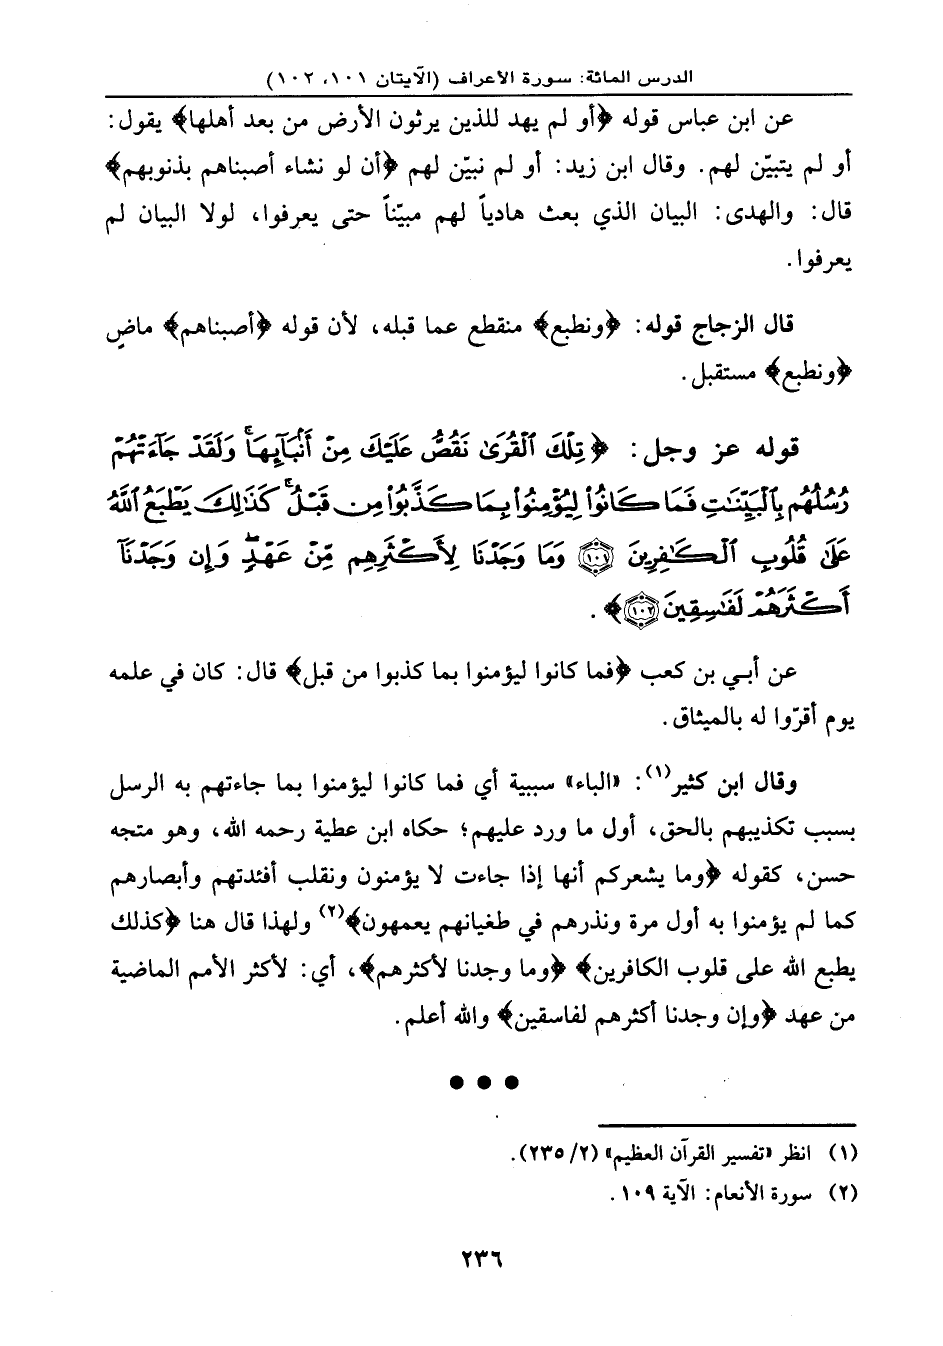 الدرس المائة: سورة الأعراف (الآيتان ١٠١، ١٠٢)
عن ابن عباس قوله ﴿أو لم يهد للذين يرثون الأرض من بعد أهلها﴾ يقول:
أو لم يتبيّن لهم. وقال ابن زيد: أو لم نبيّن لهم ﴿أن لو نشاء أصبناهم بذنوبهم﴾
قال: والهدى: البيان الذي بعث هادياً لهم مبيّناً حتى يعرفوا، لولا البيان لم
يعرفوا.
قال الزجاج قوله: ﴿ونطبع﴾ منقطع عما قبله، لأن قوله ﴿أصبناهم﴾ ماضٍ
﴿ونطبع﴾ مستقبل.
قوله عز وجل: ﴿تِلْكَ ٱلْقُرَىٰ نَقُصُّ عَلَيْكَ مِنْ أَنۢبَآئِهَا ۚ وَلَقَدْ جَآءَتْهُمْ
رُسُلُهُم بِٱلْبَيِّنَٰتِ فَمَا كَانُوا۟ لِيُؤْمِنُوا۟ بِمَا كَذَّبُوا۟ مِن قَبْلُ ۚ كَذَٰلِكَ يَطْبَعُ ٱللَّهُ
عَلَىٰ قُلُوبِ ٱلْكَٰفِرِينَ ۝١٠١ وَمَا وَجَدْنَا لِأَكْثَرِهِم مِّنْ عَهْدٍ ۖ وَإِن وَجَدْنَآ
أَكْثَرَهُمْ لَفَٰسِقِينَ ۝١٠٢﴾.
عن أبي بن كعب ﴿فما كانوا ليؤمنوا بما كذبوا من قبل﴾ قال: كان في علمه
يوم أقرّوا له بالميثاق.
وقال ابن كثير(١): «الباء» سببية أي فما كانوا ليؤمنوا بما جاءتهم به الرسل
بسبب تكذيبهم بالحق، أول ما ورد عليهم؛ حكاه ابن عطية رحمه الله، وهو متجه
حسن، كقوله ﴿وما يشعركم أنها إذا جاءت لا يؤمنون ونقلب أفئدتهم وأبصارهم
كما لم يؤمنوا به أول مرة ونذرهم في طغيانهم يعمهون﴾(٢) ولهذا قال هنا ﴿كذلك
يطبع الله على قلوب الكافرين﴾ ﴿وما وجدنا لأكثرهم﴾، أي: لأكثر الأمم الماضية
من عهد ﴿وإن وجدنا أكثرهم لفاسقين﴾ والله أعلم.
● ● ●
(١) انظر «تفسير القرآن العظيم» (٢/ ٢٣٥).
(٢) سورة الأنعام: الآية ١٠٩.
٢٣٦